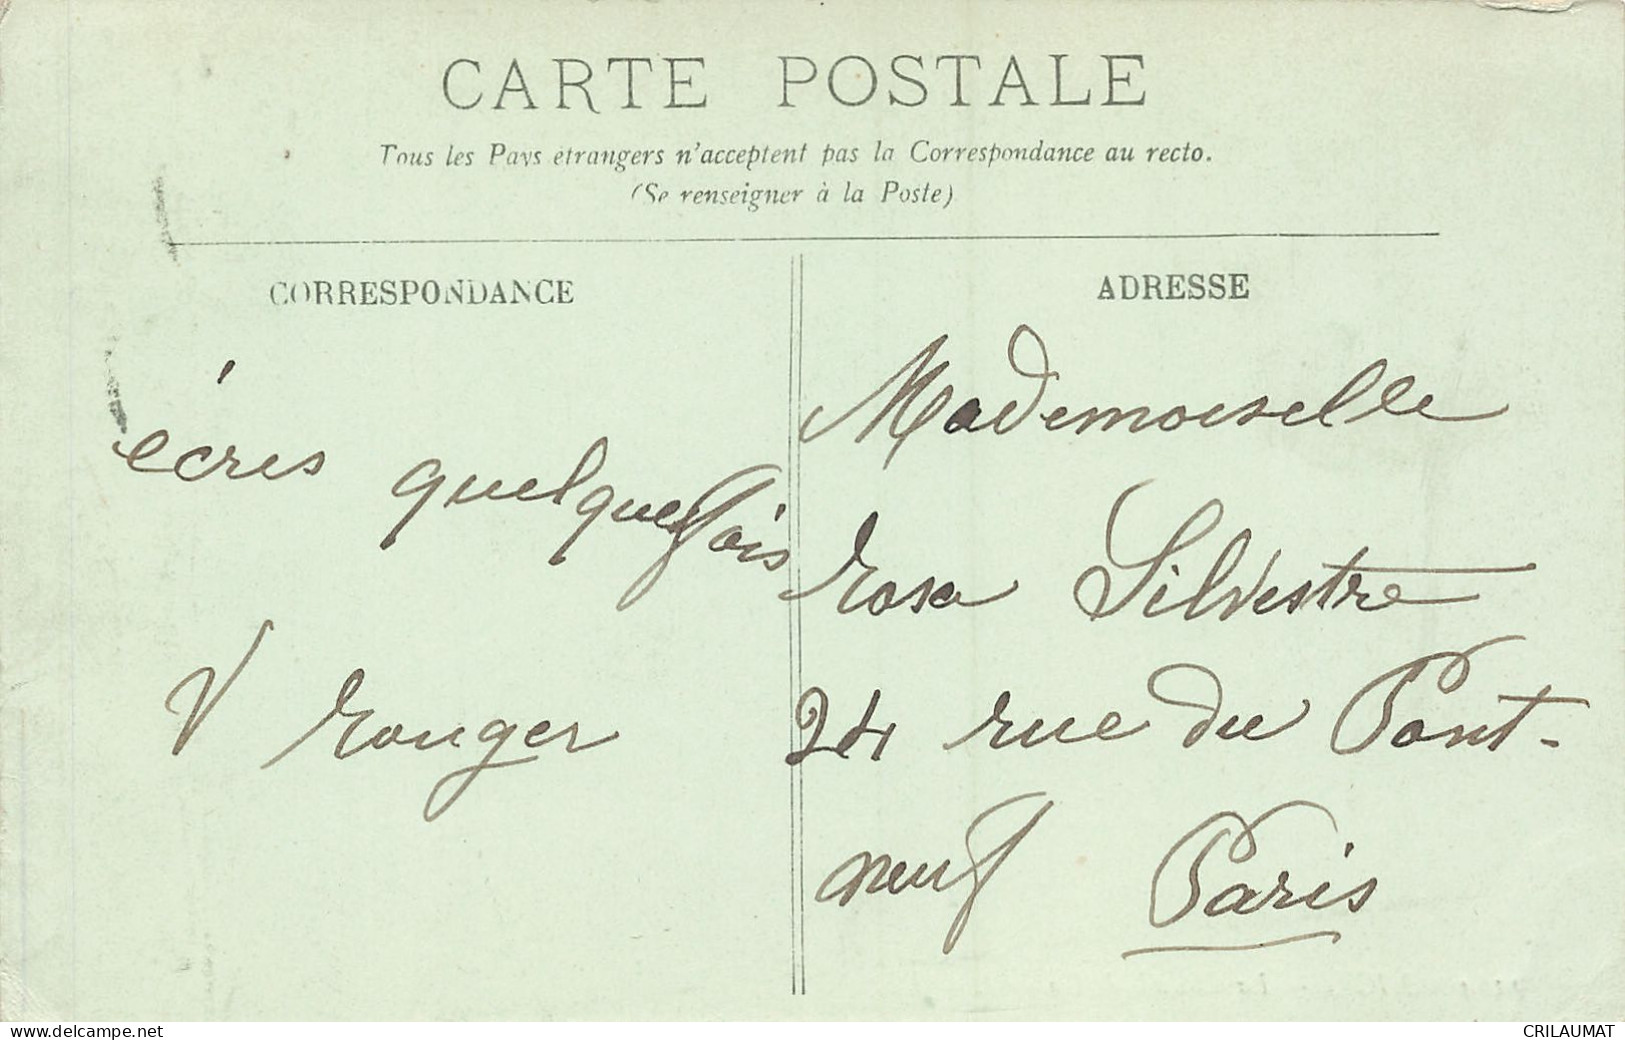 CARTE POSTALE
Tous les Pays étrangers n'acceptent pas la Correspondance au recto.
(Se renseigner à la Poste)
CORRESPONDANCE
écris quelquefois
V Rouger
ADRESSE
Mademoiselle
Rosa Silvestre
24 rue du Pont-
neuf Paris
www.delcampe.net
CRILAUMAT